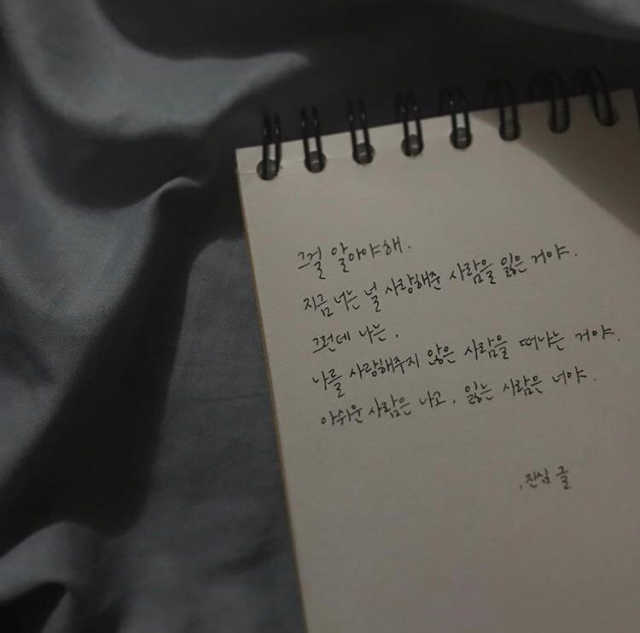 그걸 알아야해.
지금 너는 널 사랑해준 사람을 잃은 거야.
그런데 나는.
나를 사랑해주지 않은 사람을 떠나는 거야.
아쉬운 사람은 나고, 잃는 사람은 너야.
,진심 글